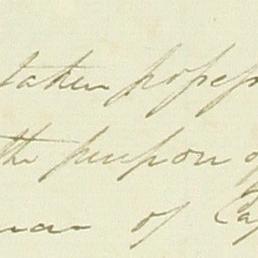 taken possess
the purpose of
of Cap